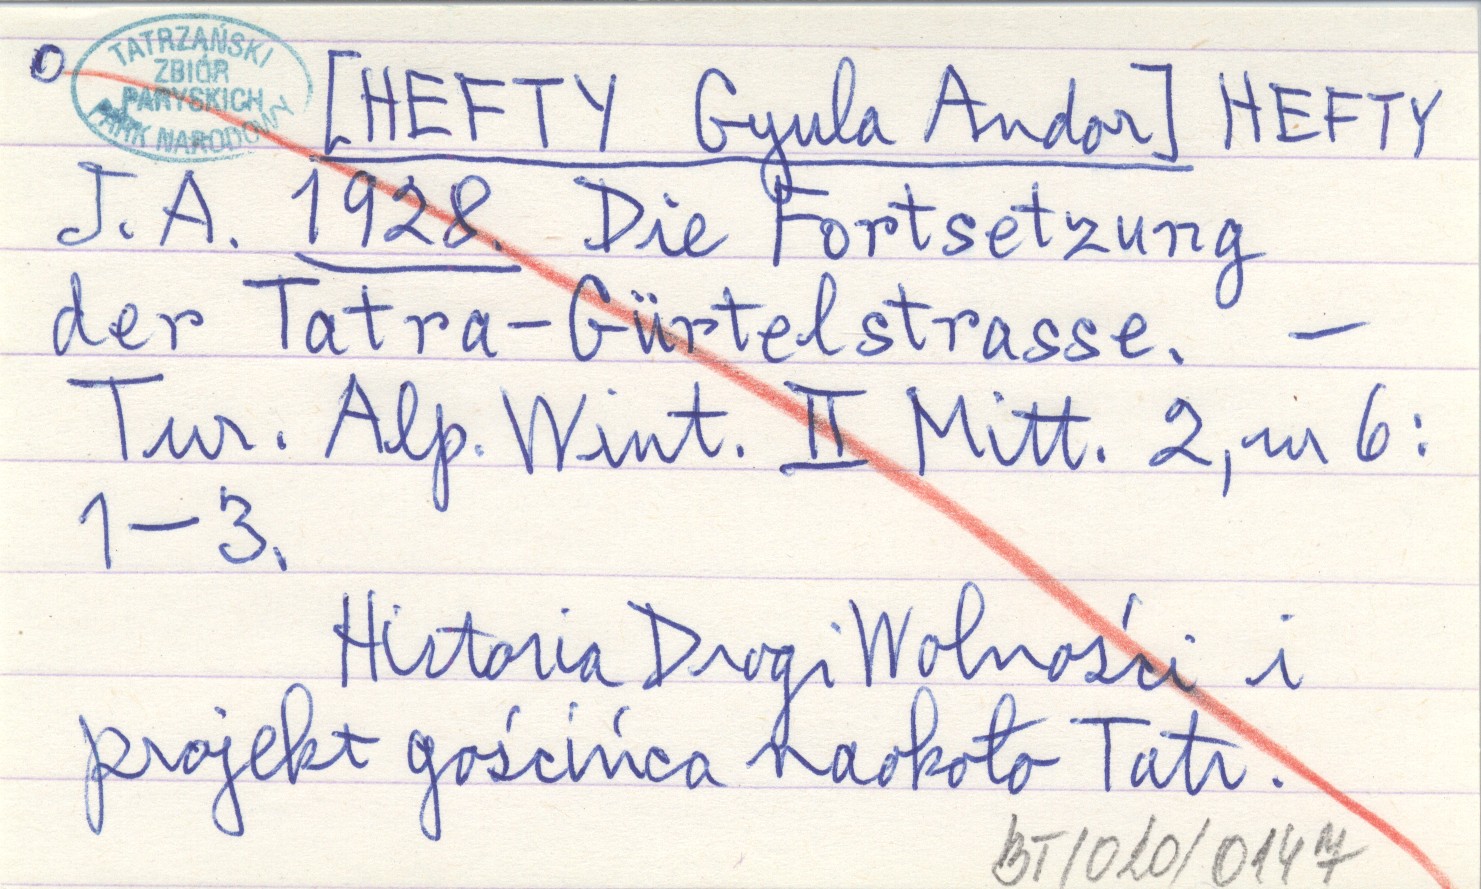 O
TATRZAŃSKI
ZBIÓR
PARYSKICH
PARK NARODOWY
[HEFTY Gyula Andor] HEFTY
J. A. 1928. Die Fortsetzung
der Tatra-Gürtelstrasse. —
Tur. Alp. Wint. II Mitt. 2, nr 6:
1—3.
Historia Drogi Wolności i
projekt gościńca naokoło Tatr.
BT/020/0147